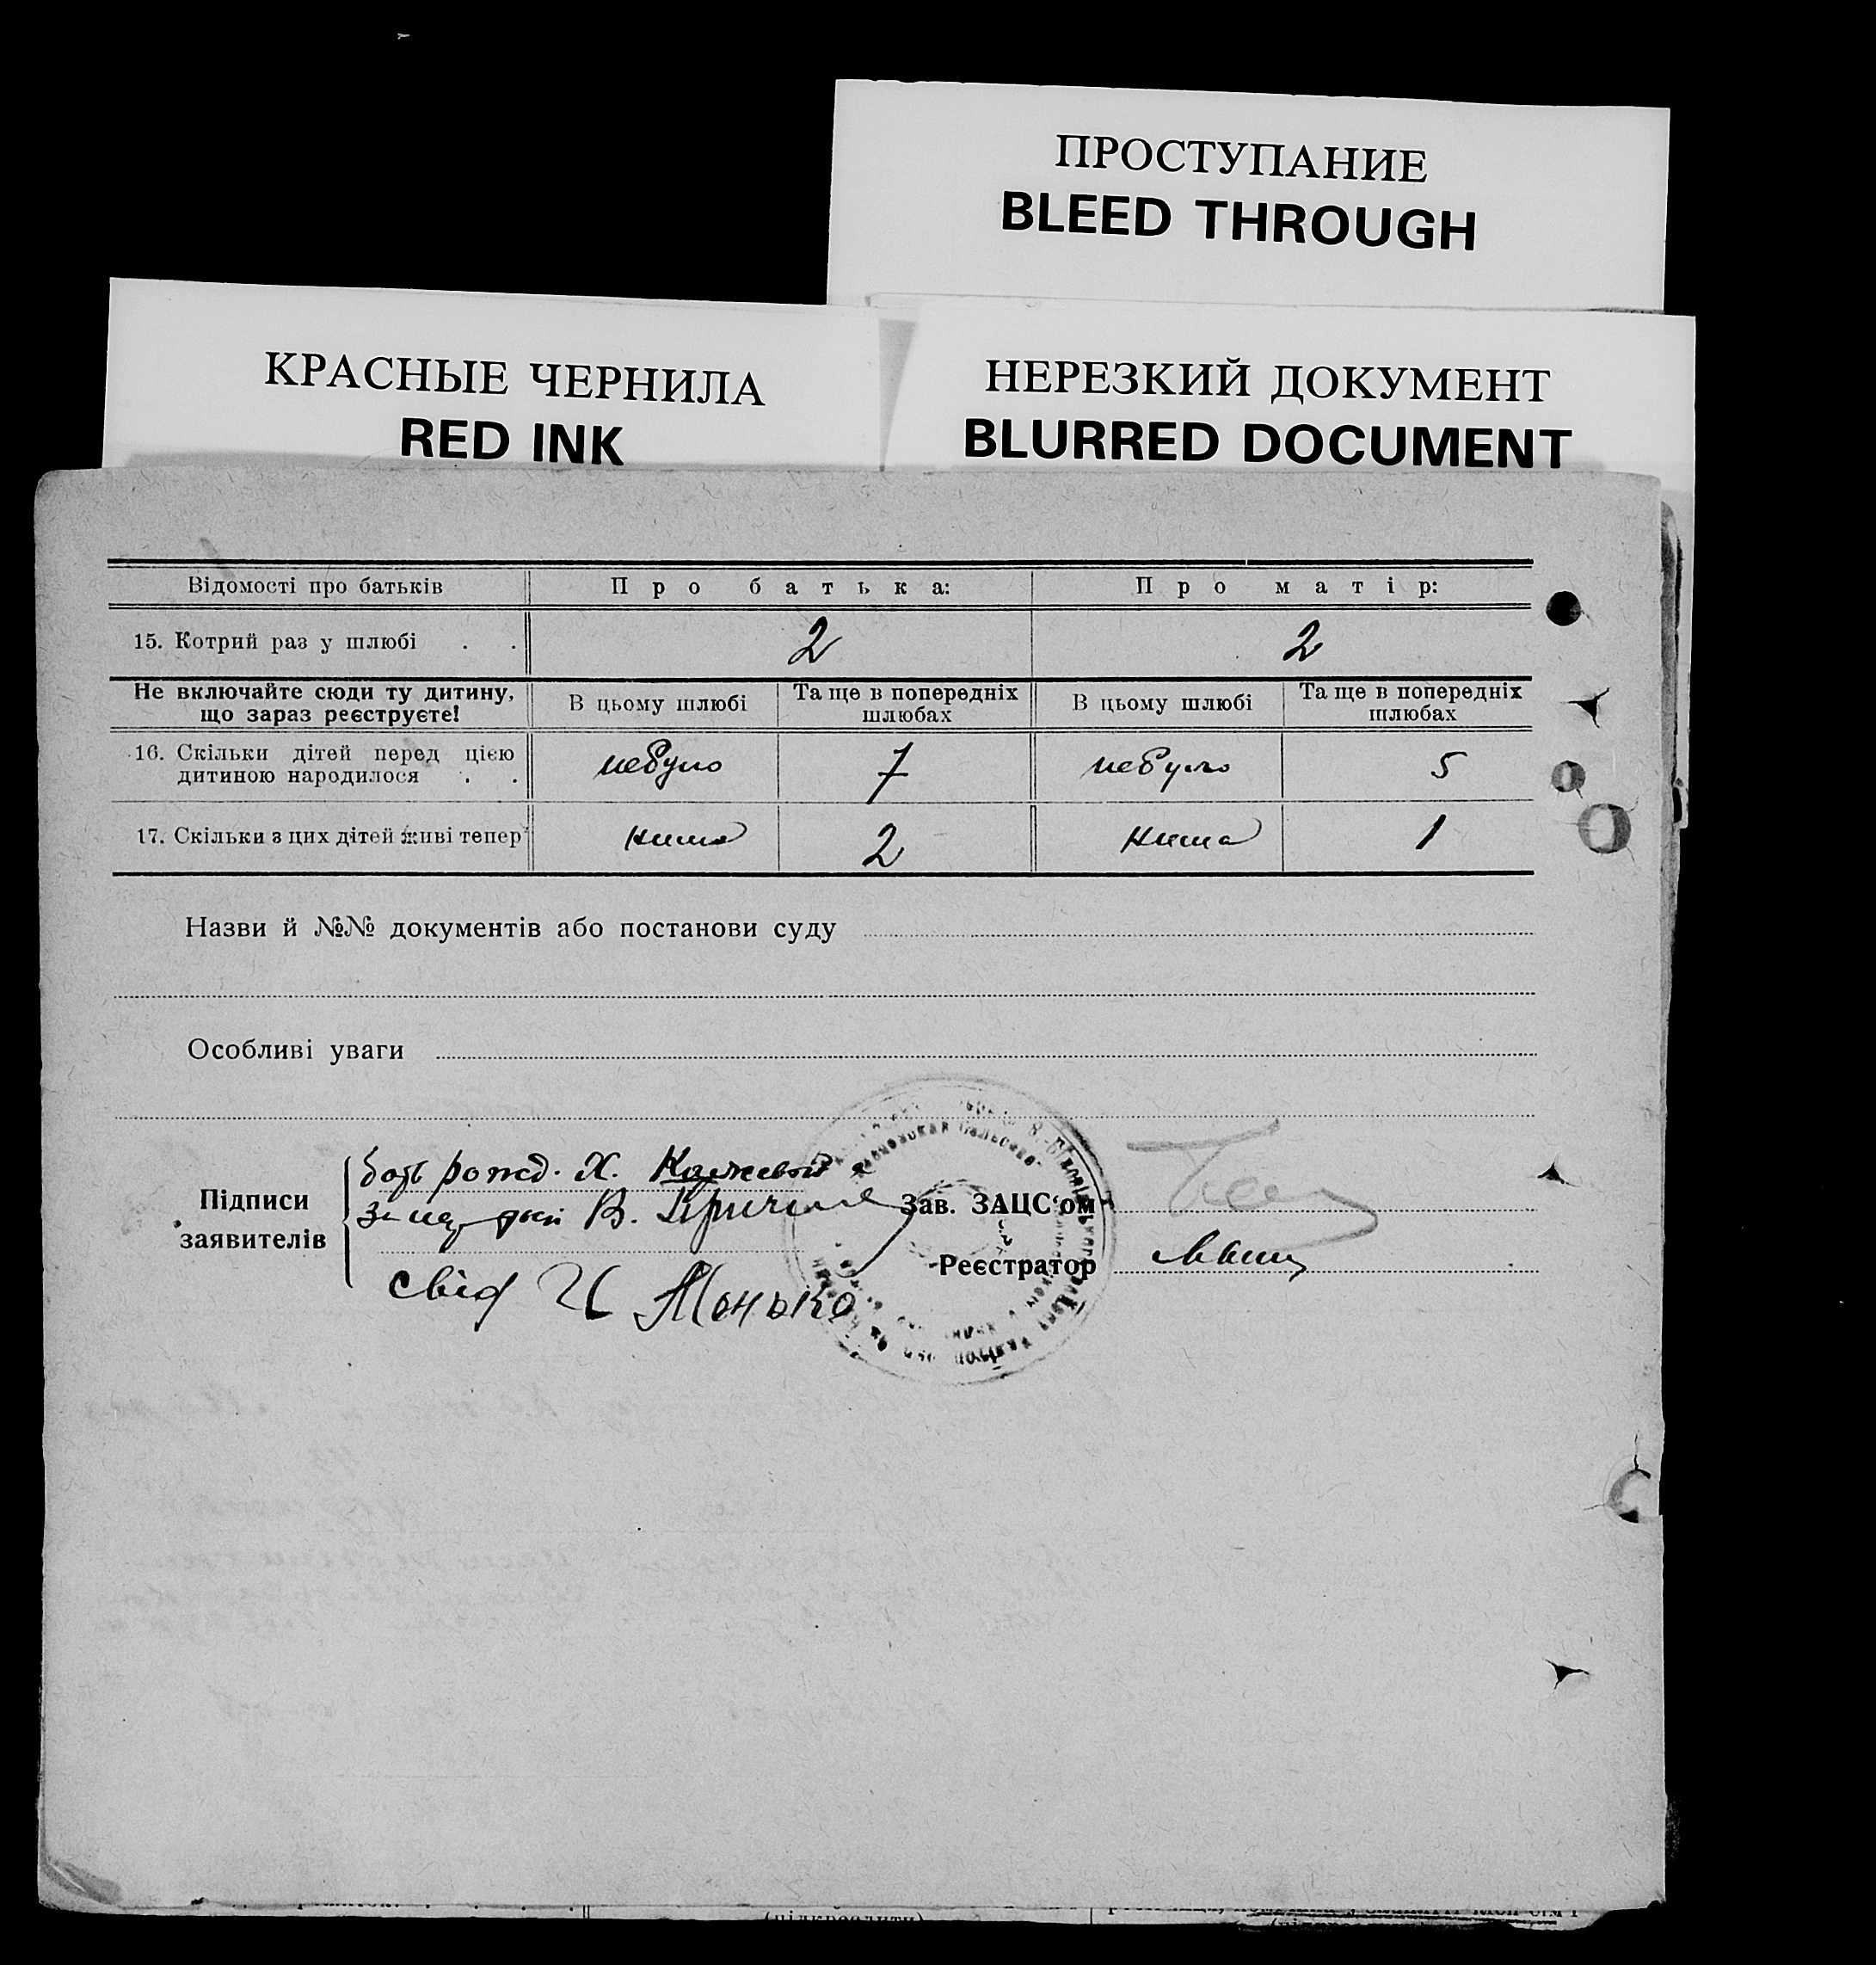 ПРОСТУПАНИЕ
BLEED THROUGH
КРАСНЫЕ ЧЕРНИЛА
RED INK
НЕРЕЗКИЙ ДОКУМЕНТ
BLURRED DOCUMENT
Відомості про батьків Про батька: Про матір:
15. Котрий раз у шлюбі . . 2 2
Не включайте сюди ту дитину, що зараз реєструєте! В цьому шлюбі Та ще в попередніх шлюбах В цьому шлюбі Та ще в попередніх шлюбах
16. Скільки дітей перед цією дитиною народилося . . небуло 7 небуло 5
17. Скільки з цих дітей живі тепер нима 2 нима 1
Назви й №№ документів або постанови суду
Особливі уваги
Підписи заявителів
Х.
В.
свід И Монько
Зав. ЗАЦС'ом
Реєстратор
(підкреслити)